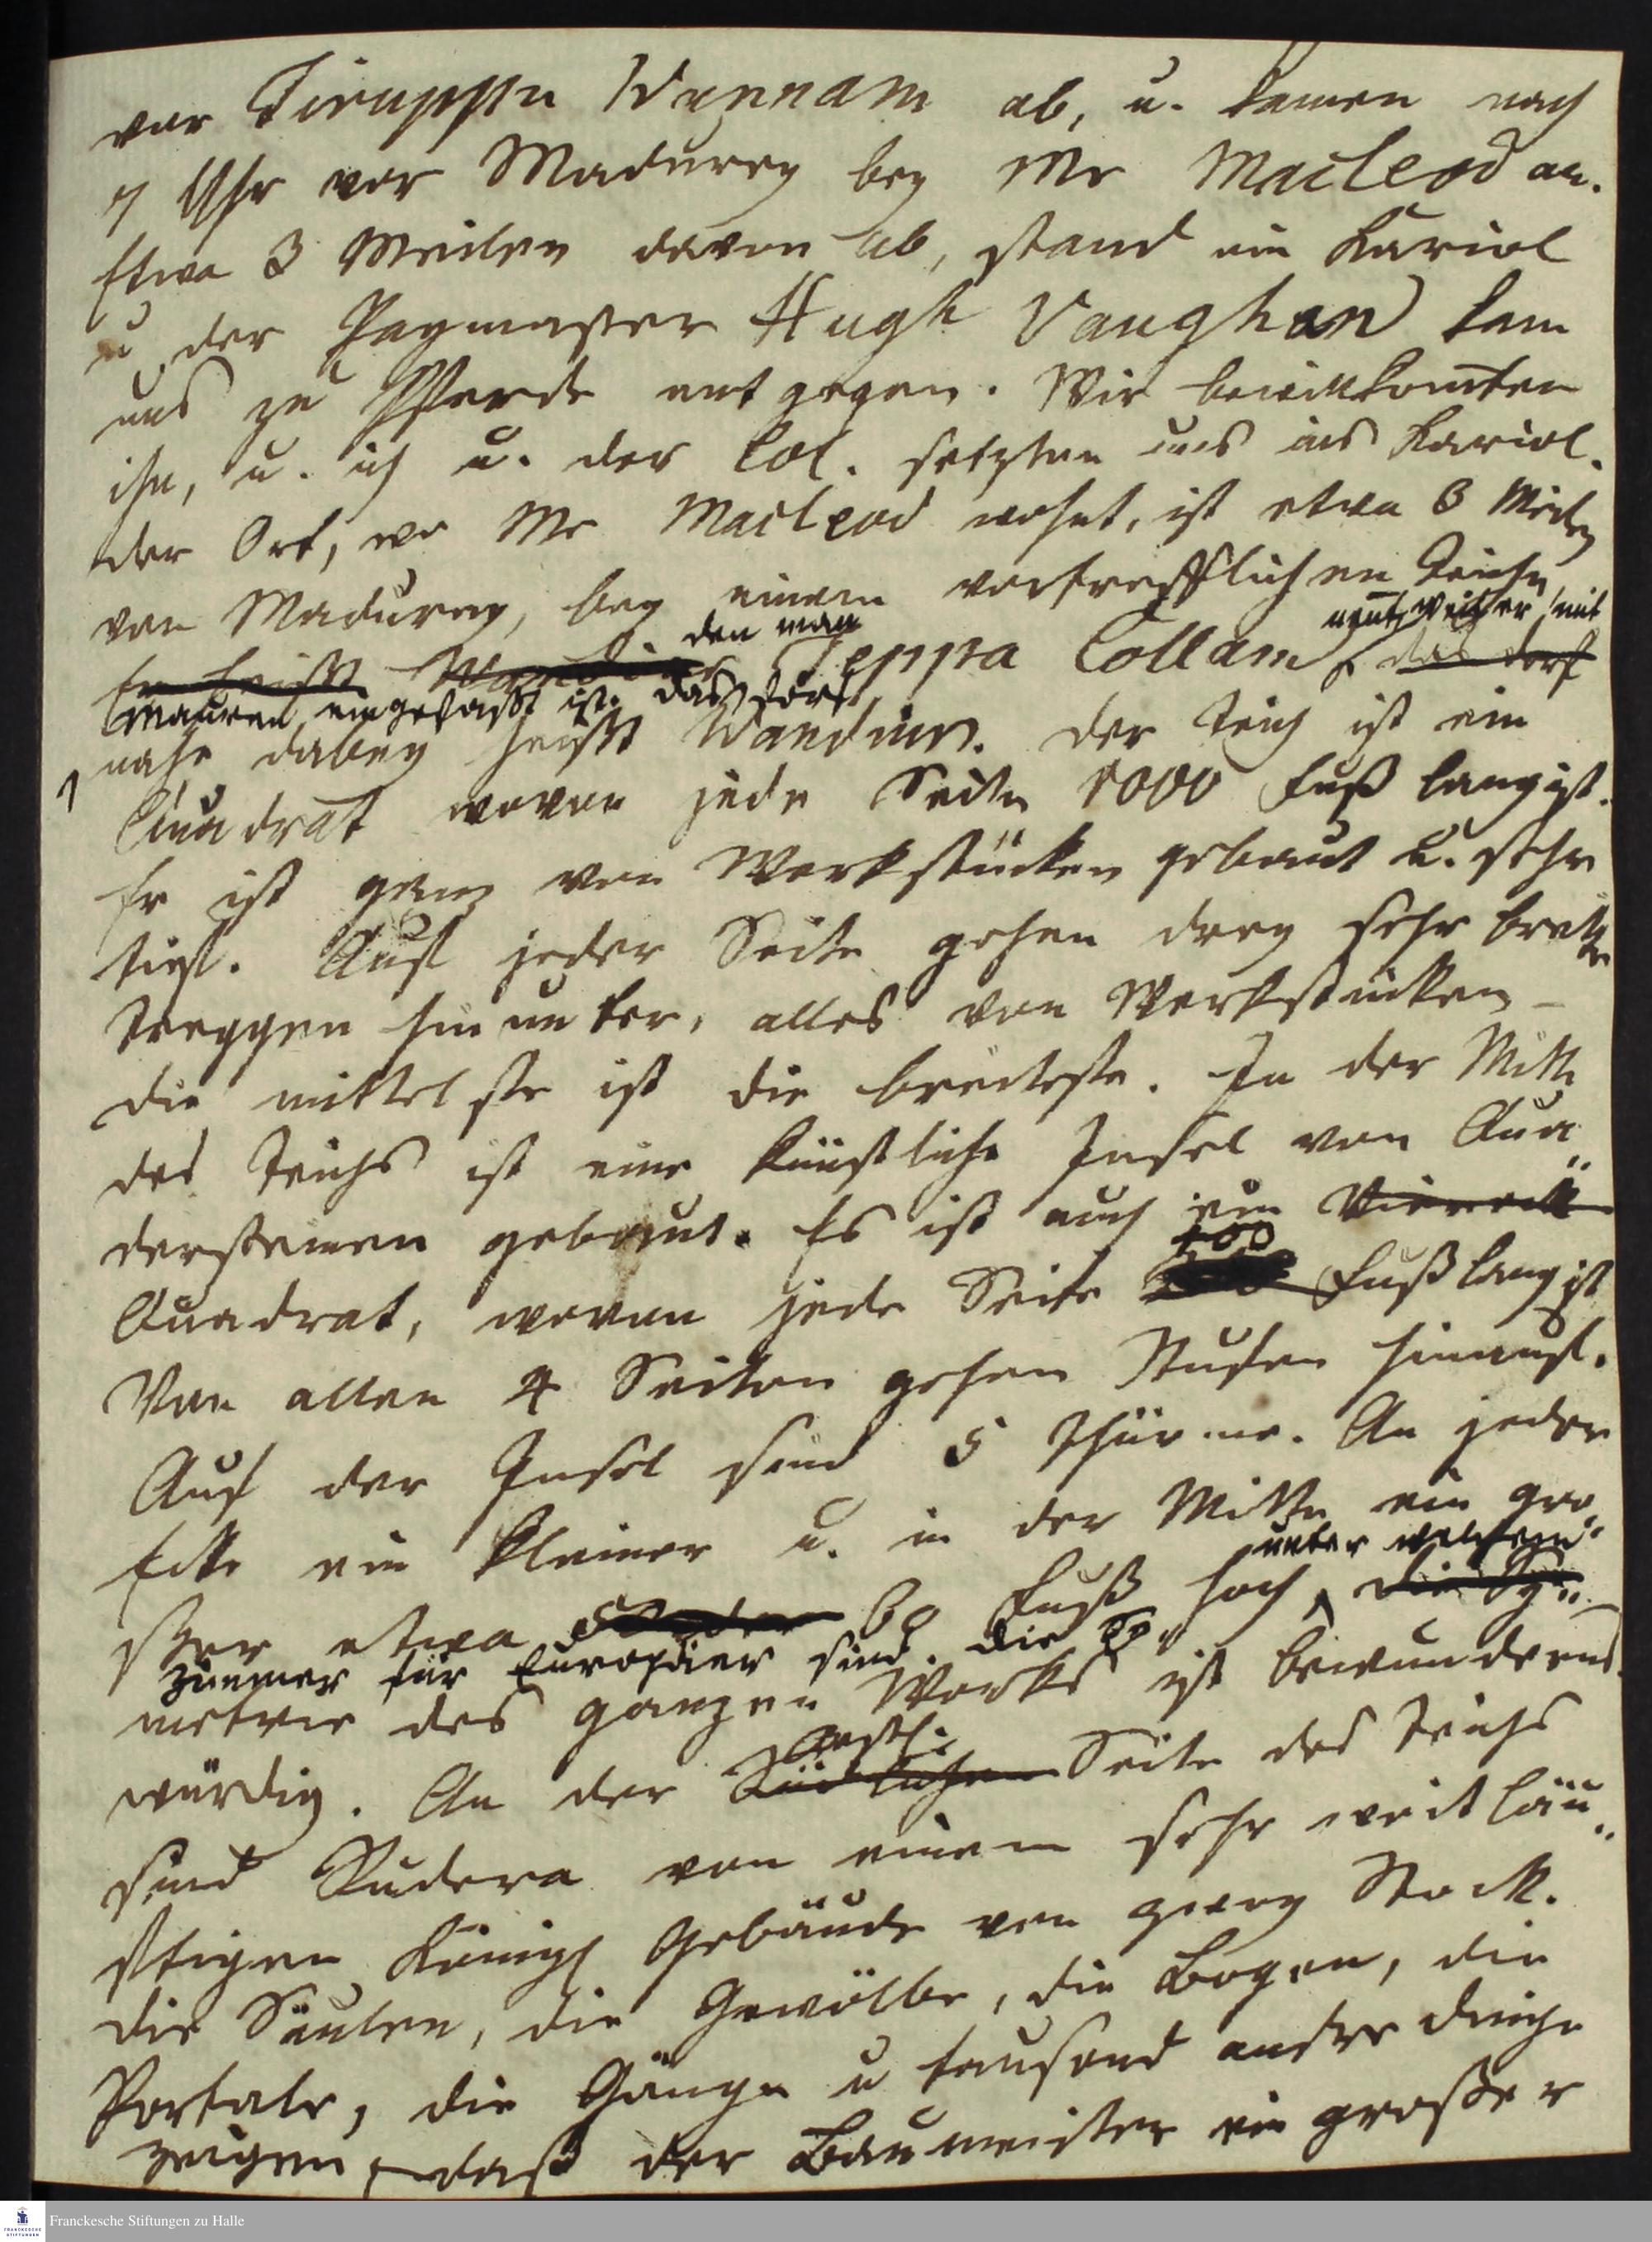 von Tiruppu Wannam ab, u. kamen nach
7 Uhr vor Madurey bey Mr Macleod an.
Etwa 3 Meilen davon ab, stand ein Kariol
u der Paymaster Hugh Vaughan kam
uns zu Pferde entgegen. Wir bewillkomten
ihn, u. ich u. der Col. setzten uns ins Kariol.
der Ort, wo Mr Macleod wohnt, ist etwa 3 Meilen
von Madurey, bey einem vortrefflichen Teiche
den man nent, welcher mit
Er heisst Teppa Collam, das dorf
Mauren eingefasst ist. das dorf
nahe dabey heisst Wandiur. der Teich ist ein
Quadrat wovon jede Seite 1000 Fuß lang ist.
Er ist ganz von Werkstücken gebaut u. sehr
tief. Auf jeder Seite gehen drey sehr breite
Treppen hinunter, alles von Werkstücken –
die mittelste ist die breiteste. In der Mitte
des Teichs ist eine künstliche Insel von Qua„
dersteinen gebaut. Es ist auch ein Viereck
100
Quadrat, wovon jede Seite Fuß lang ist
Von allen 4 Seiten gehen Stufen hinauf.
Auf der Insel sind 5 Thürme. An jeder
Ecke ein kleiner u. in der Mitte ein gro„
unter welchem
ßer etwa 60 Fuß hoch, die Sy„
Zimmer für Europäer sind. die Sy„
metrie des ganzen Werks ist bewunderns
würdig. An der Südlichen Seite des Teichs
sind Rudera von einem sehr weitläu„
ftigen Königl Gebäude von zwey Stock.
die Säulen, die Gewölbe, die Bogen, die
Portale, die Gänge u tausend andre dinge
zeigen, daß der Baumeister ein großer
Franckesche Stiftungen zu Halle